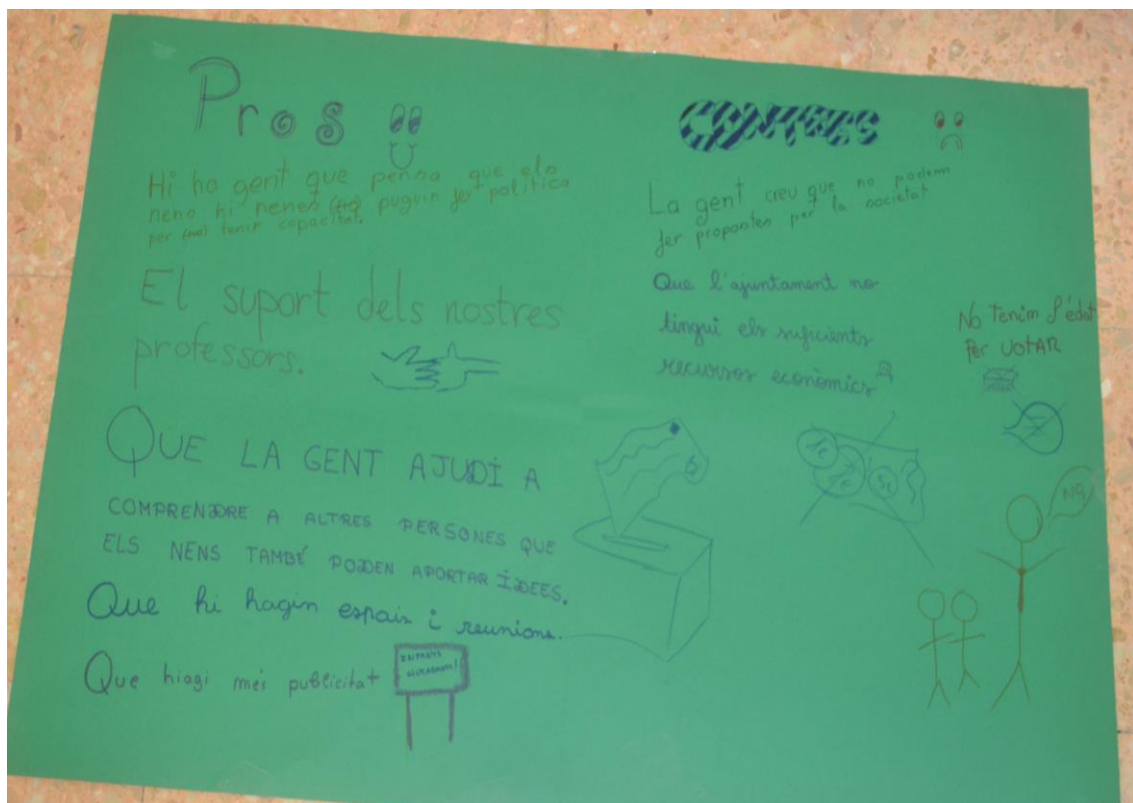 Pros
Hi ha gent que pensa que els
nens hi nenes puguin fer política
per tenir capacitat.
El suport dels nostres
professors.
QUE LA GENT AJUDI A
COMPRENDRE A ALTRES PERSONES QUE
ELS NENS TAMBÉ PODEN APORTAR IDEES.
Que hi hagin espais i reunions.
Que hiagi més publicitat
INFANTS
CIUTADANS!
CONTRES
La gent creu que no podem
fer propostes per la societat
Que l'ajuntament no
tingui els suficients
recursos econòmics
No Tenim l'édat
Per VOTAR
NO